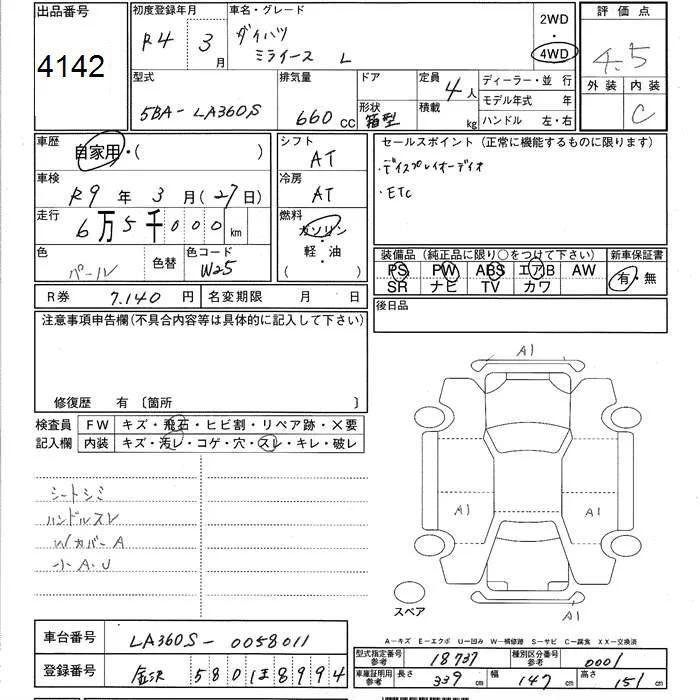 出品番号
4142
初度登録年月
R4 3月
車名・グレード
ダイハツ
ミライース L
2WD
・
4WD
評価点
4.5
外装 内装
C
型式
5BA-LA360S
排気量
660 cc
ドア
形状
箱型
定員
4人
積載
kg
ディーラー・並行
モデル年式 年
ハンドル 左・右
車歴
自家用・( )
車検
R9年 3月(27日)
走行
6万5千000km
色
パール
色替
色コード
W25
シフト
AT
冷房
AT
燃料
ガソリン
軽・油
( )
セールスポイント(正常に機能するものに限ります)
・ディスプレイオーディオ
・ETC
装備品(純正品に限り○をつけて下さい)
PS PW ABS エアB AW
SR ナビ TV カワ
新車保証書
有・無
R券 7.140円
名変期限 月 日
後日品
注意事項申告欄(不具合内容等は具体的に記入して下さい)
修復歴 有 〔箇所 〕
検査員
記入欄
FW キズ・飛石・ヒビ割・リペア跡・×要
内装 キズ・汚レ・コゲ・穴・スレ・キレ・破レ
シートシミ
ハンドルスレ
WカバーA
小A.U
A1
A1
A1
A1
スペア
A-キズ E-エクボ U-凹み W-補修跡 S-サビ C-腐食 XX-交換済
車台番号 LA360S-0058011
登録番号 金沢 580 ほ 8994
型式指定番号
参考
18737
種別区分番号
参考
0001
車庫証明用
参考
長さ 339cm
幅 147cm
高さ 151cm